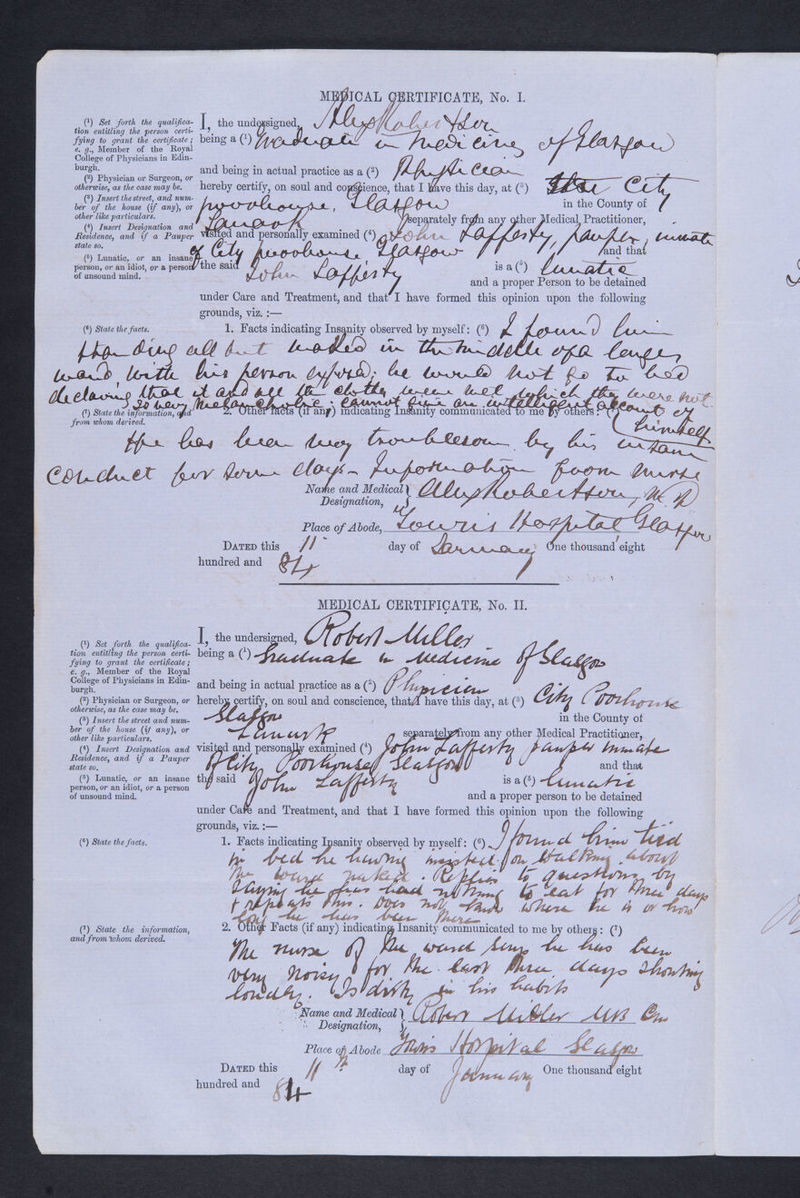 MEDICAL CERTIFICATE, No. I.
(¹) Set forth the qualifica-
tion entitling the person certi-
fying to grant the certificate;
e. g., Member of the Royal
College of Physicians in Edin-
burgh.
(²) Physician or Surgeon, or
otherwise, as the case may be.
(³) Insert the street, and num-
ber of the house (if any), or
other like particulars.
(⁴) Insert Designation and
Residence, and if a Pauper
state so.
(⁵) Lunatic, or an insane
person, or an idiot, or a person
of unsound mind.
I, the undersigned, Alex Robertson
being a (¹) Graduate in Medicine of Glasgow
and being in actual practice as a (²) Physician
hereby certify, on soul and conscience, that I have this day, at (³) the City
poorhouse, Glasgow in the County of
Lanark separately from any other Medical Practitioner,
visited and personally examined (⁴) John Lafferty, pauper, inmate
of City poorhouse Glasgow and that
the said John Lafferty is a (⁵) lunatic
and a proper Person to be detained
under Care and Treatment, and that I have formed this opinion upon the following
grounds, viz. :—
(⁶) State the facts.
1. Facts indicating Insanity observed by myself: (⁶) I found him
standing all but naked in the middle of a large
ward, with his person exposed; he would not go to bed
declaring that it and all the clothes were wet which they were not
is very Melancholic, cannot give an intelligent account of
himself
(⁷) State the information, and
from whom derived.
2. Other facts (if any) indicating Insanity communicated to me by others: (⁷)
He has been very troublesome by his insane
conduct for some days – Information from nurse
Name and Medical Designation, Alex Robertson, M.D
Place of Abode, Towns Hospital Glasgow
DATED this 11 day of January One thousand eight
hundred and 84
MEDICAL CERTIFICATE, No. II.
(¹) Set forth the qualifica-
tion entitling the person certi-
fying to grant the certificate;
e. g., Member of the Royal
College of Physicians in Edin-
burgh.
(²) Physician or Surgeon, or
otherwise, as the case may be.
(³) Insert the street and num-
ber of the house (if any), or
other like particulars.
(⁴) Insert Designation and
Residence, and if a Pauper
state so.
(⁵) Lunatic, or an insane
person, or an idiot, or a person
of unsound mind.
I, the undersigned, Robert Miller
being a (¹) Graduate in Medicine of Glasgow
and being in actual practice as a (²) Physician
hereby certify, on soul and conscience, that I have this day, at (³) City Poorhouse
Glasgow in the County of
Lanark separately from any other Medical Practitioner,
visited and personally examined (⁴) John Lafferty pauper inmate
of City Poorhouse Glasgow and that
the said John Lafferty is a (⁵) lunatic
and a proper person to be detained
under Care and Treatment, and that I have formed this opinion upon the following
grounds, viz. :—
(⁶) State the facts.
1. Facts indicating Insanity observed by myself: (⁶) I found him tied
in bed he having insisted on walking about
the ward naked. Replies to questions by
saying he has had nothing to eat for three days
& repeats this. Does not know where he is or how
long he has been there
(⁷) State the information,
and from whom derived.
2. Other Facts (if any) indicating Insanity communicated to me by others: (⁷)
The nurse of the ward says he has been
very noisy for the last three days shouting
loudly. Is dirty in his habits
Name and Medical Designation, Robert Miller MB Cm
Place of Abode Towns Hospital Glasgow
DATED this 11th day of January One thousand eight
hundred and 84